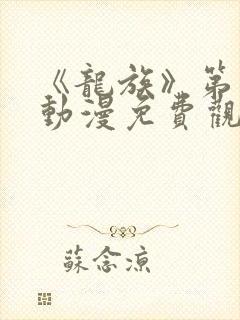 《龍族》第
動漫免費觀
蘇念涼